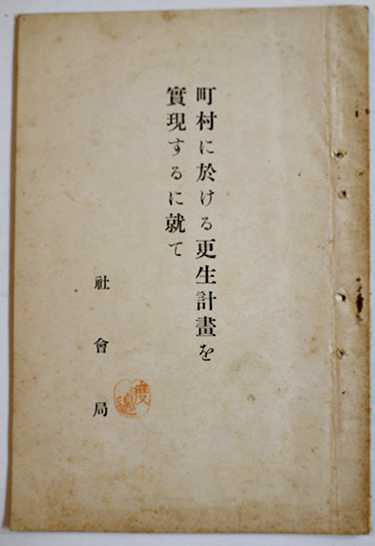 町村に於ける更生計畫を
實現するに就て
社會局
渡邊